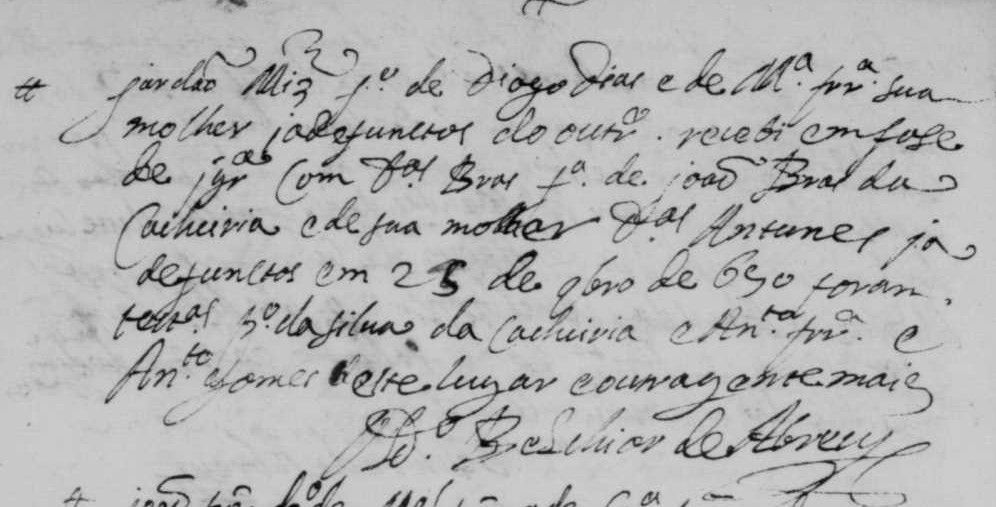 jordão Miz fo. de Diogo Dias e de Ma. frra. sua
molher ja defunctos do outro. recebi em fase
de jgrª Com Das Bras fa. de joaõ Bras da
Cacheiria e de sua molher Das Antunes ja
defunctos em 25 de 9bro de 650 foram
testas. po. da silva da Cacheiria e Anto frra. e
Anto gomes deste lugar e outra gente mais
Po. Belchior de Abreu
joaõ